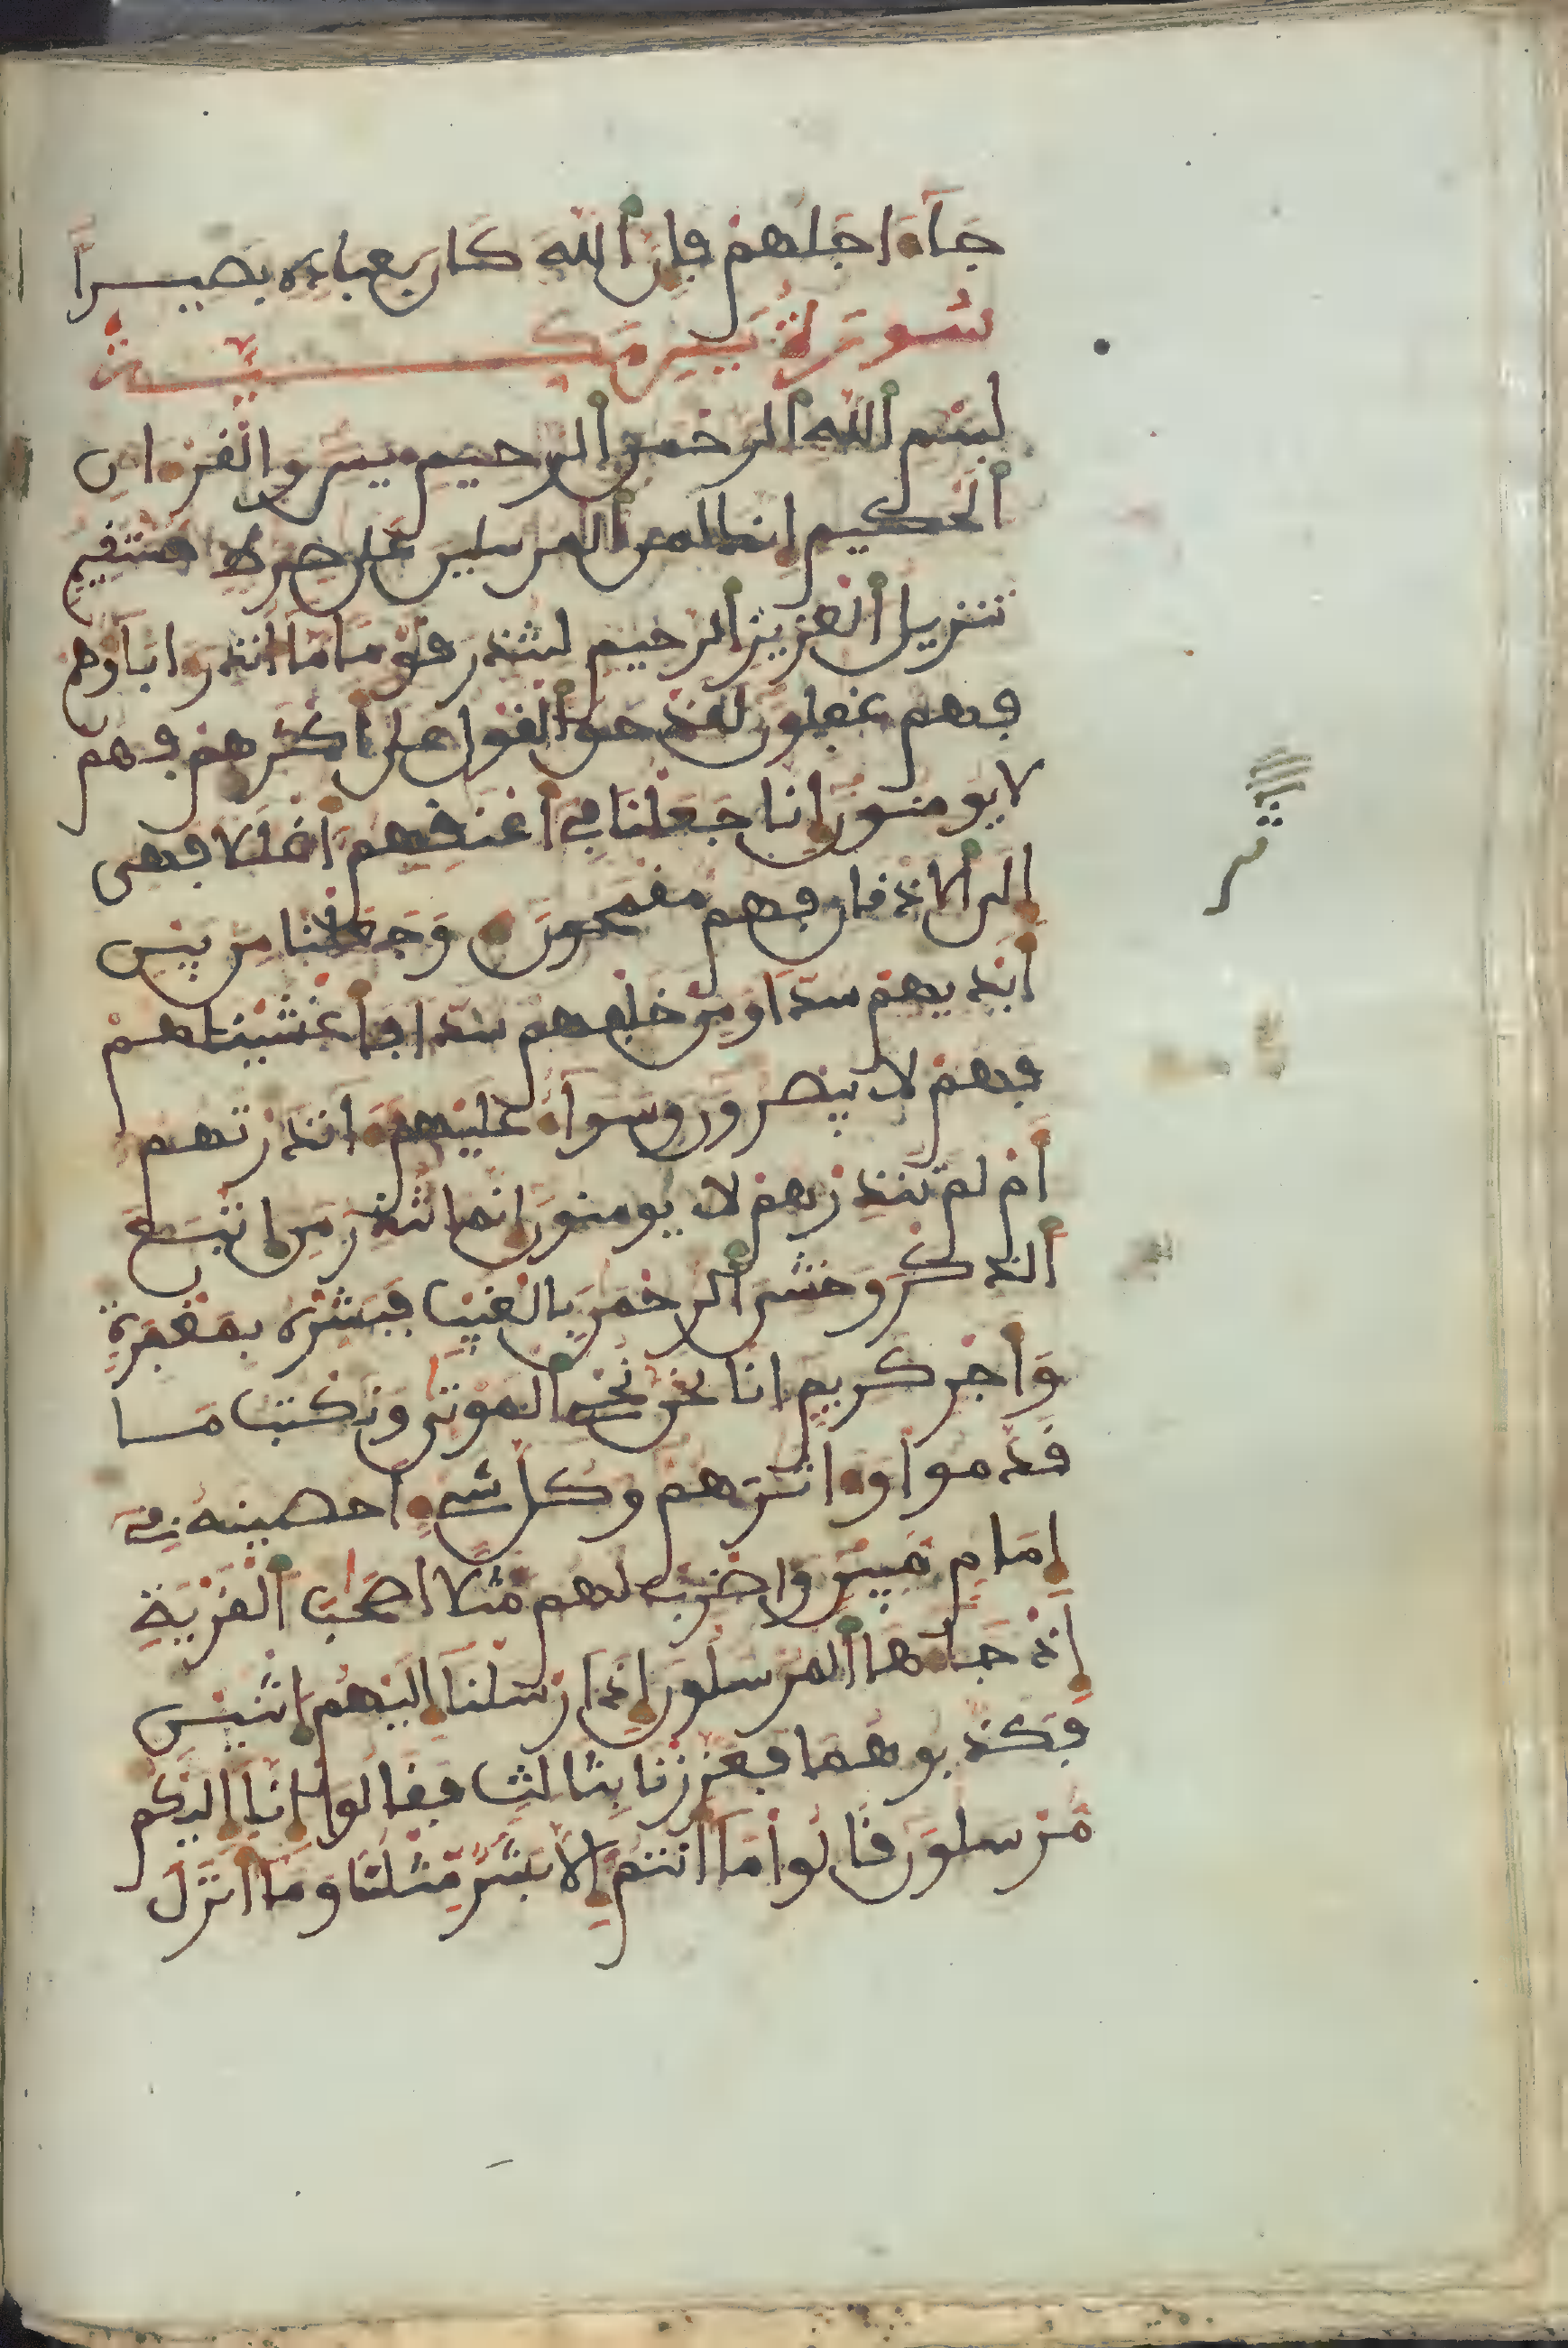 جَآءَ اجَلُهُمْ فَإِنَّ اَ۬للَّهَ كَانَ بِعِبَادِهِ بَصِيراً
سُورَةُ يَسِٓ مَكِّيَّةٌ
بِسْمِ اِ۬للَّهِ اِ۬لرَّحْمَٰنِ اِ۬لرَّحِيمِ يَسِٓ وَالْقُرْءَانِ
اِ۬لْحَكِيمِ إِنَّكَ لَمِنَ اَ۬لْمُرْسَلِينَ عَلَىٰ صِرَٰطٖ مُّسْتَقِيمٖ
تَنزِيلُ اُ۬لْعَزِيزِ اِ۬لرَّحِيمِ لِتُنذِرَ قَوْماً مَّآ أُنذِرَ ءَابَآؤُهُمْ
فَهُمْ غَٰفِلُونَ لَقَدْ حَقَّ اَ۬لْقَوْلُ عَلَىٰٓ أَكْثَرِهِمْ فَهُمْ
لَا يُومِنُونَ إِنَّا جَعَلْنَا فِےٓ أَعْنَٰقِهِمُۥٓ أَغْلَٰلًا فَهِىَ
إِلَى اَ۬لَاذْقَانِ فَهُم مُّقْمَحُونَ وَجَعَلْنَا مِنۢ بَيْنِ
أَيْدِيهِمْ سُدّاً وَمِنْ خَلْفِهِمْ سُدّاً فَأَغْشَيْنَاهُمْ
فَهُمْ لَا يُبْصِرُونَ وَسَوَآءٌ عَلَيْهِمُۥٓ ءَآنذَرْتَهُمُۥٓ
أَمْ لَمْ تُنذِرْهُمْ لَا يُومِنُونَ إِنَّمَا تُنذِرُ مَنِ اِ۪تَّبَعَ
اَ۬لذِّكْرَ وَخَشِىَ اَ۬لرَّحْمَٰنَ بِالْغَيْبِ فَبَشِّرْهُ بِمَغْفِرَةٖ
وَأَجْرٖ كَرِيمٍ اِنَّا نَحْنُ نُحْيِ اِ۬لْمَوْتَىٰ وَنَكْتُبُ مَا
قَدَّمُواْ وَءَاثَٰرَهُمْ وَكُلَّ شَےْءٍ اَحْصَيْنَٰهُ فِےٓ
إِمَامٖ مُّبِينٖ وَاضْرِبْ لَهُم مَّثَلًا اَصْحَٰبَ اَ۬لْقَرْيَةِ
إِذْ جَآءَهَا اَ۬لْمُرْسَلُونَ إِذَ اَرْسَلْنَآ إِلَيْهِمُ اُ۪ثْنَيْنِ
فَكَذَّبُوهُمَا فَعَزَّزْنَا بِثَالِثٖ فَقَالُوٓاْ إِنَّآ إِلَيْكُم
مُّرْسَلُونَ قَالُواْ مَآ أَنتُمُۥٓ إِلَّا بَشَرٞ مِّثْلُنَا وَمَآ أَنزَلَ